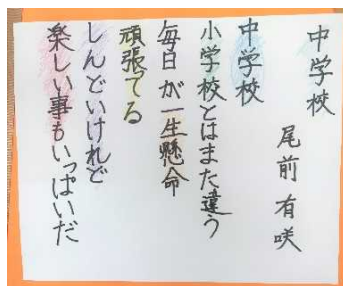 中学校
尾前有咲
中学校
小学校とはまた違う
毎日が一生懸命
頑張てる
しんどいけれど
楽しい事もいっぱいだ